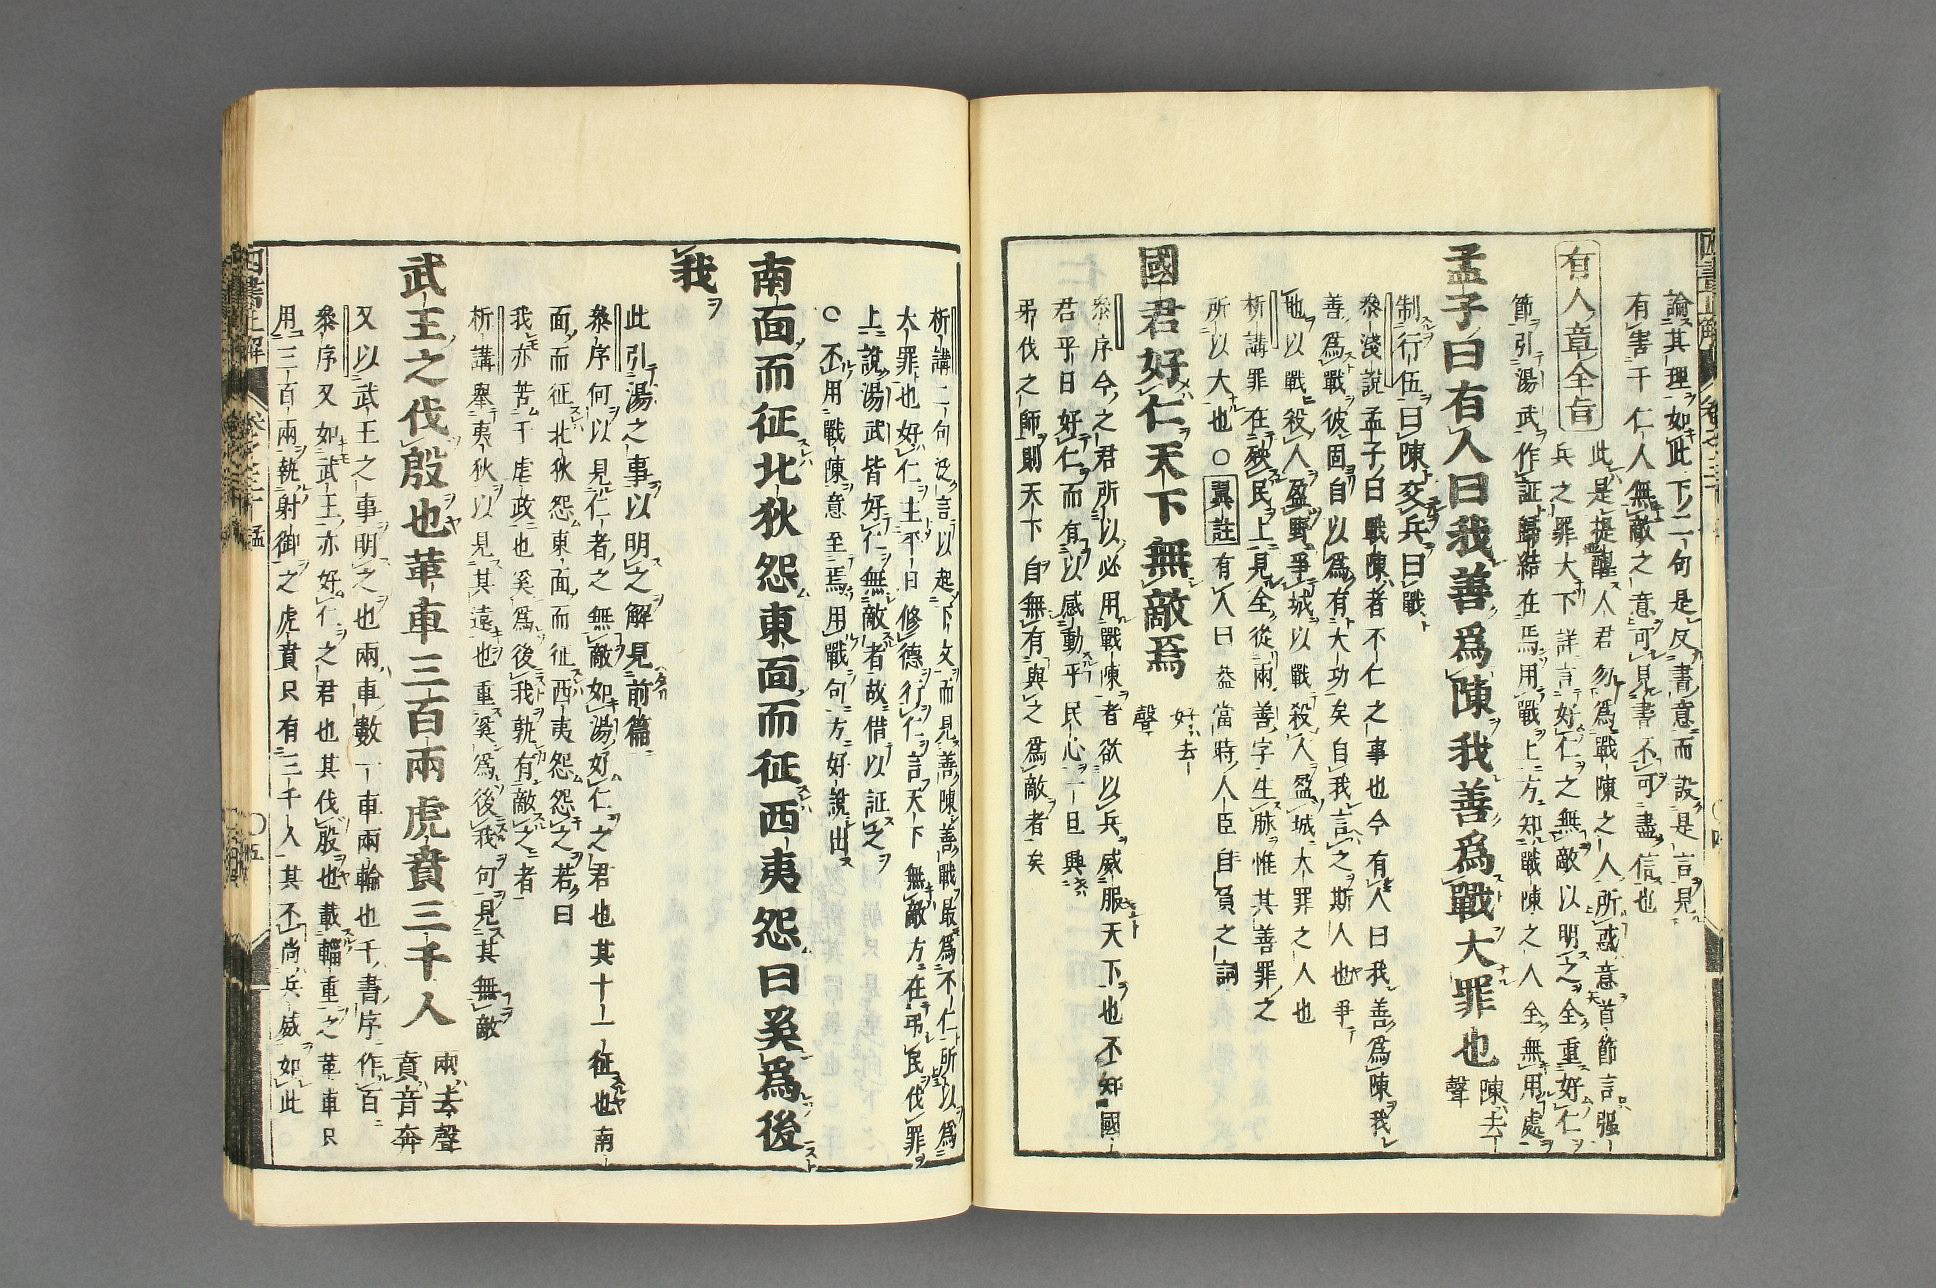 論其理如此下二句是反書意而設是言見
有害于仁人無敵之意可見書不可盡信也
有人章全旨
此是提醒人君勿爲戰陳之人所惑意首節言強
兵之罪大下詳言好仁之無敵以明之全重好仁
節引湯武作証歸結在焉用戰上方知戰陳之人全無用處
孟子曰有人曰我善爲陳我善爲戰大罪也
陳去
聲
制行伍曰陳交兵曰戰
叅淺説孟子曰戰陳者不仁之事也今有人曰我善爲陳我
善爲戰彼固自以爲有大功矣自我言之斯人也爭
地以戰殺人盈野爭城以戰殺人盈城大罪之人也
析講罪在殃民上見全從兩善字生脉惟其善罪之
所以大也○翼註有人曰葢當時人臣自負之詞
國君好仁天下無敵焉
好去
聲
叅序今之君所以必用戰陳者欲以兵威服天下也不知國
君平日好仁而有以感動乎民心一旦興
弔伐之師則天下自無有與之爲敵者矣
析講二句泛言以起下文而見善陳善戰最爲不仁所以爲
大罪也好仁主平日修德行仁言天下無敵方在弔民伐罪
上説湯武皆好仁無敵者故借以証之
○不用戰陳意至焉用戰句方好説出
南面而征北狄怨東面而征西夷怨曰奚爲後
我
此引湯之事以明之解見前篇
叅序何以見仁者之無敵如湯好仁之君也其十一征也南
面而征北狄怨東面而征西夷怨怨之若曰
我亦苦于虐政也奚爲後我孰有敵之者
析講舉夷狄以見其遠也重奚爲後我句見其無敵
武王之伐殷也革車三百兩虎賁三千人
兩去聲
賁音奔
又以武王之事明之也兩車數一車兩輪也千書序作百
叅序又如武王亦好仁之君也其伐殷也載輜重之革車只
用三百兩執射御之虎賁只有三千人其不尚兵威如此